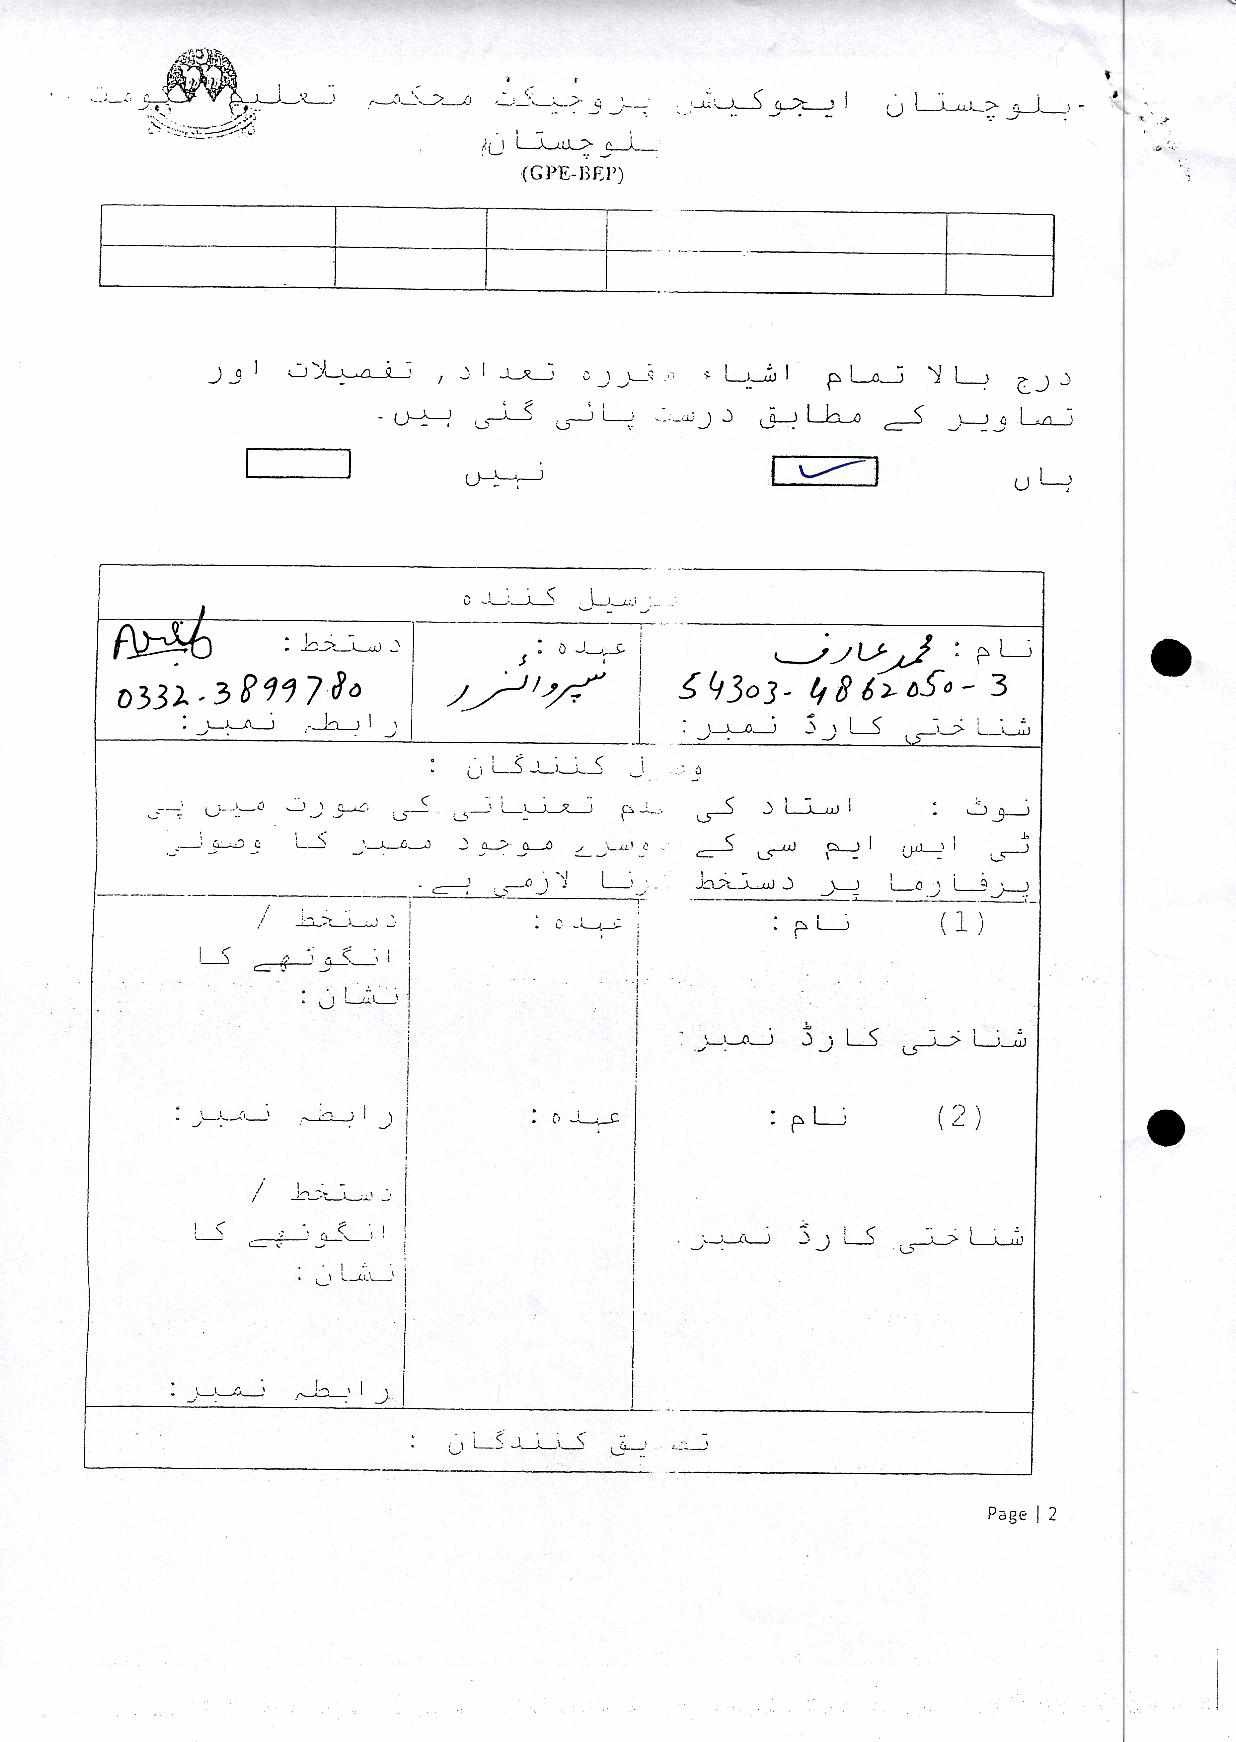 بلوچستان ایجوکیشن پروجیکٹ محکمہ تعلیم حکومت
بلوچستان
(GPE-BEP)
درج بالا تمام اشیاء مقررہ تعداد, تفصیلات اور
تصاویر کے مطابق درست پائی گئی ہیں۔
ہاں ✓ نہیں
ترسیل کنندہ
نام: محمد عارف عہدہ: دستخط: Arif
54303-4862050-3 سپروائزر 0332-3899780
شناختی کارڈ نمبر: رابطہ نمبر:
وصول کنندگان :
نوٹ : استاد کی عدم تعنیاتی کی صورت میں پی
ٹی ایس ایم سی کے دوسرے موجود ممبر کا وصولی
پرفارما پر دستخط کرنا لازمی ہے۔
(1) نام: عہدہ: دستخط /
انگوٹھے کا
نشان:
شناختی کارڈ نمبر:
(2) نام: عہدہ: رابطہ نمبر:
دستخط /
شناختی کارڈ نمبر انگوٹھے کا
نشان:
رابطہ نمبر:
تصدیق کنندگان :
Page | 2